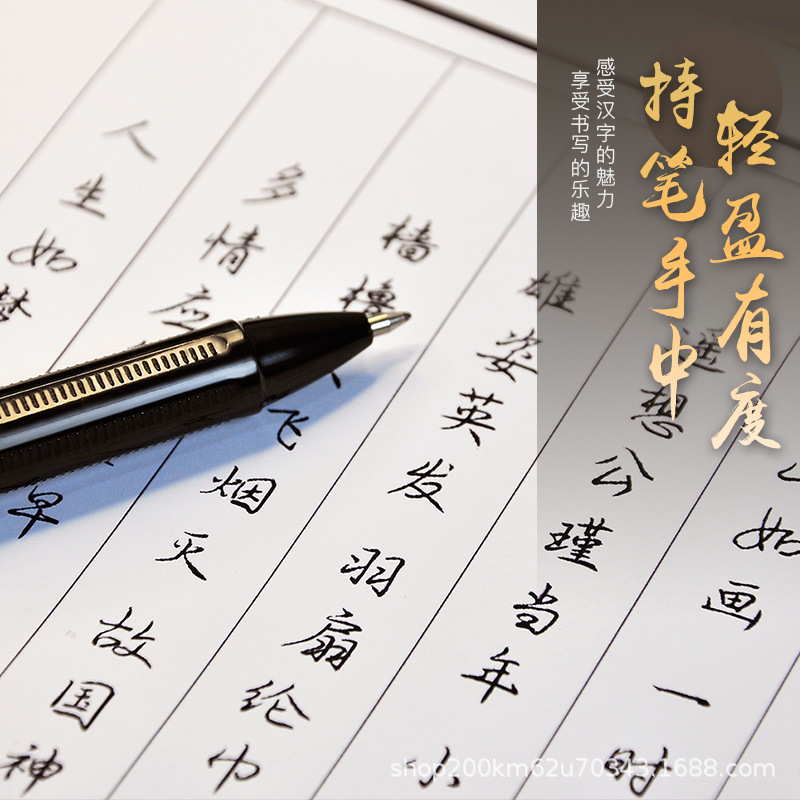 轻盈有度
持笔手中
感受汉字的魅力
享受书写的乐趣
如画一时
遥想公瑾当年小
雄姿英发羽扇纶巾
樯橹飞烟灭故国神
多情应早
人生如梦
shop200km62u70343.1688.com